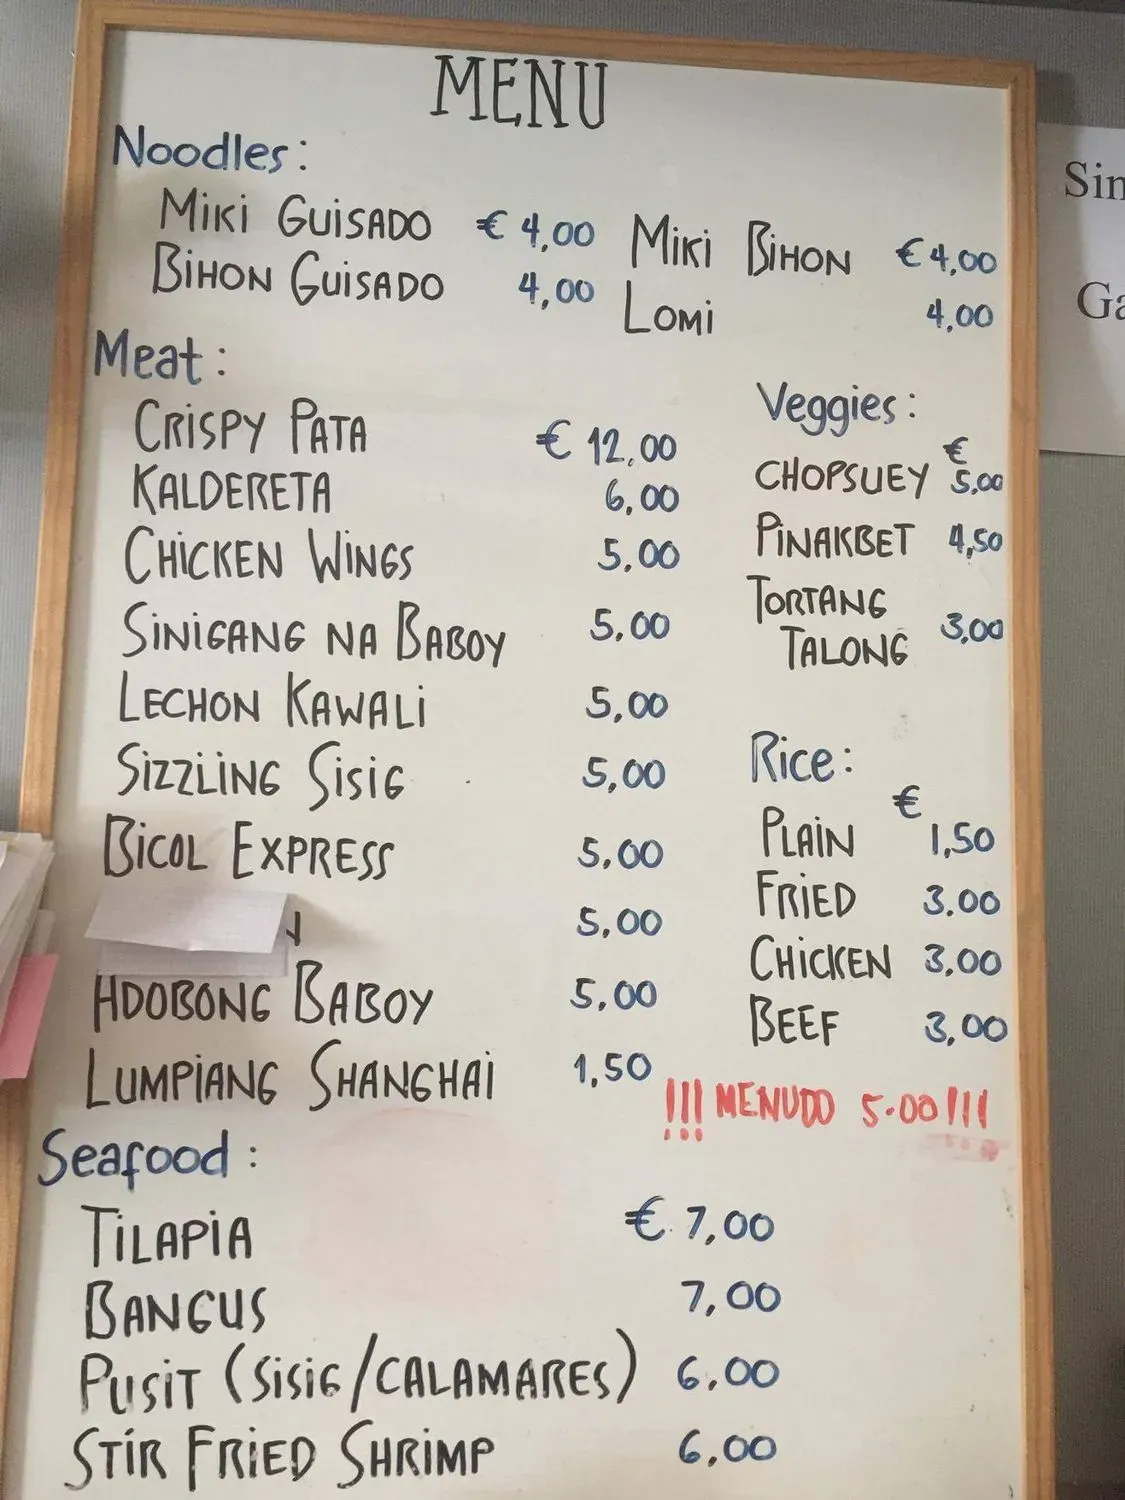 MENU
Noodles:
MIKI GUISADO € 4,00
BIHON GUISADO 4,00
MIKI BIHON € 4,00
LOMI 4,00
Meat:
CRISPY PATA € 12,00
KALDERETA 6,00
CHICKEN WINGS 5,00
SINIGANG NA BABOY 5,00
LECHON KAWALI 5,00
SIZZLING SISIG 5,00
BICOL EXPRESS 5,00
5,00
ADOBONG BABOY 5,00
LUMPIANG SHANGHAI 1,50
Veggies:
€
CHOPSUEY 5,00
PINAKBET 4,50
TORTANG
TALONG 3,00
Rice:
€
PLAIN 1,50
FRIED 3.00
CHICKEN 3,00
BEEF 3,00
!!! MENUDO 5.00!!!
Seafood:
TILAPIA € 7,00
BANGUS 7,00
PUSIT (SISIG/CALAMARES) 6,00
STIR FRIED SHRIMP 6,00
Sin
Ga